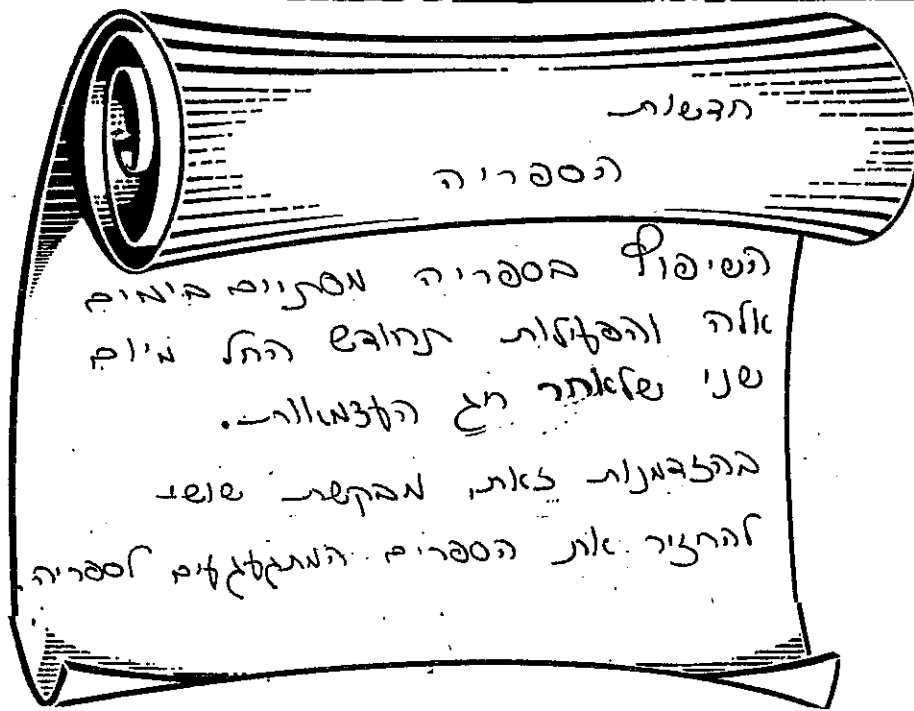 חדשות
הספריה
השיפוץ בספריה מסתיים בימים
אלה והפעילות תחודש החל מיום
שני שלאחר חג העצמאות.
בהזדמנות זאת, מבקשת שושי
להחזיר את הספרים המתגעגעים לספריה.